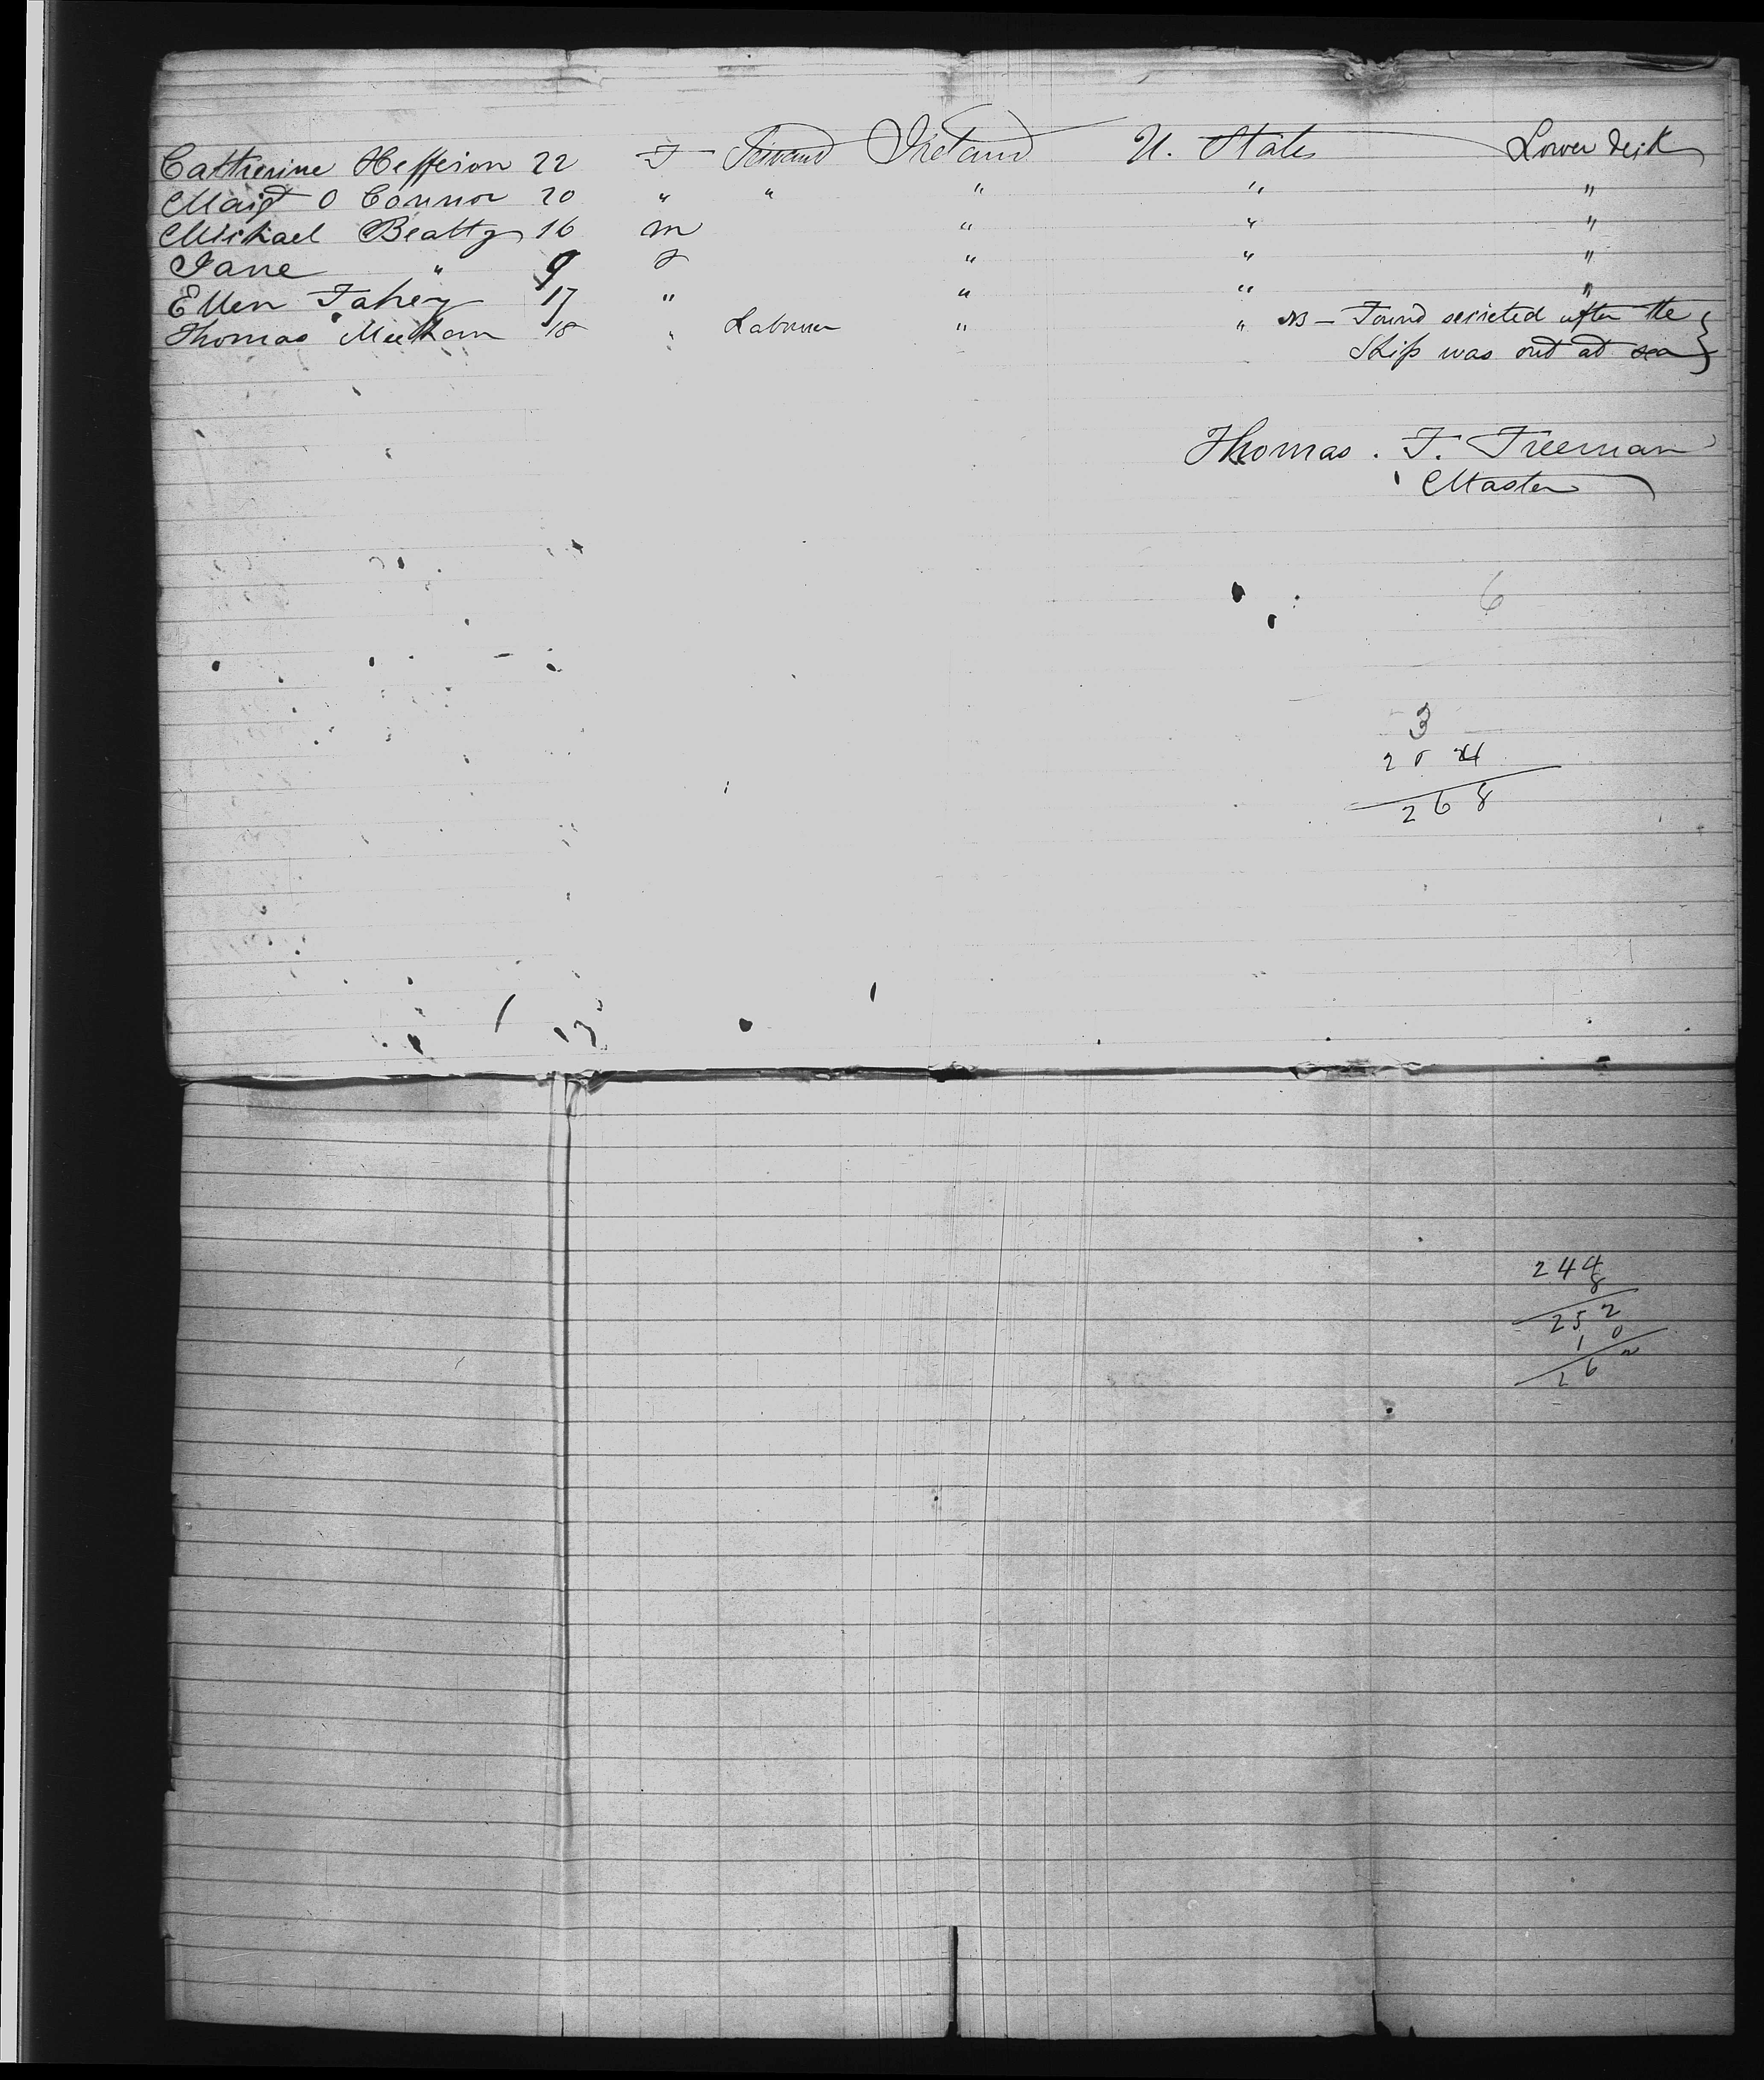 Catherine Hefferon 22 F Servant Ireland U. States Lower deck
Margt O Connor 20 " " " " "
Michael Beatty 16 m " " "
Jane " 9 F " " "
Ellen Fahey 17 " " " "
Thomas Meehan 18 " Labourer " " NB - Found secreted after the
Ship was out at sea
Thomas. F. Freeman
Master
6
3
268
244
8
252
10
262